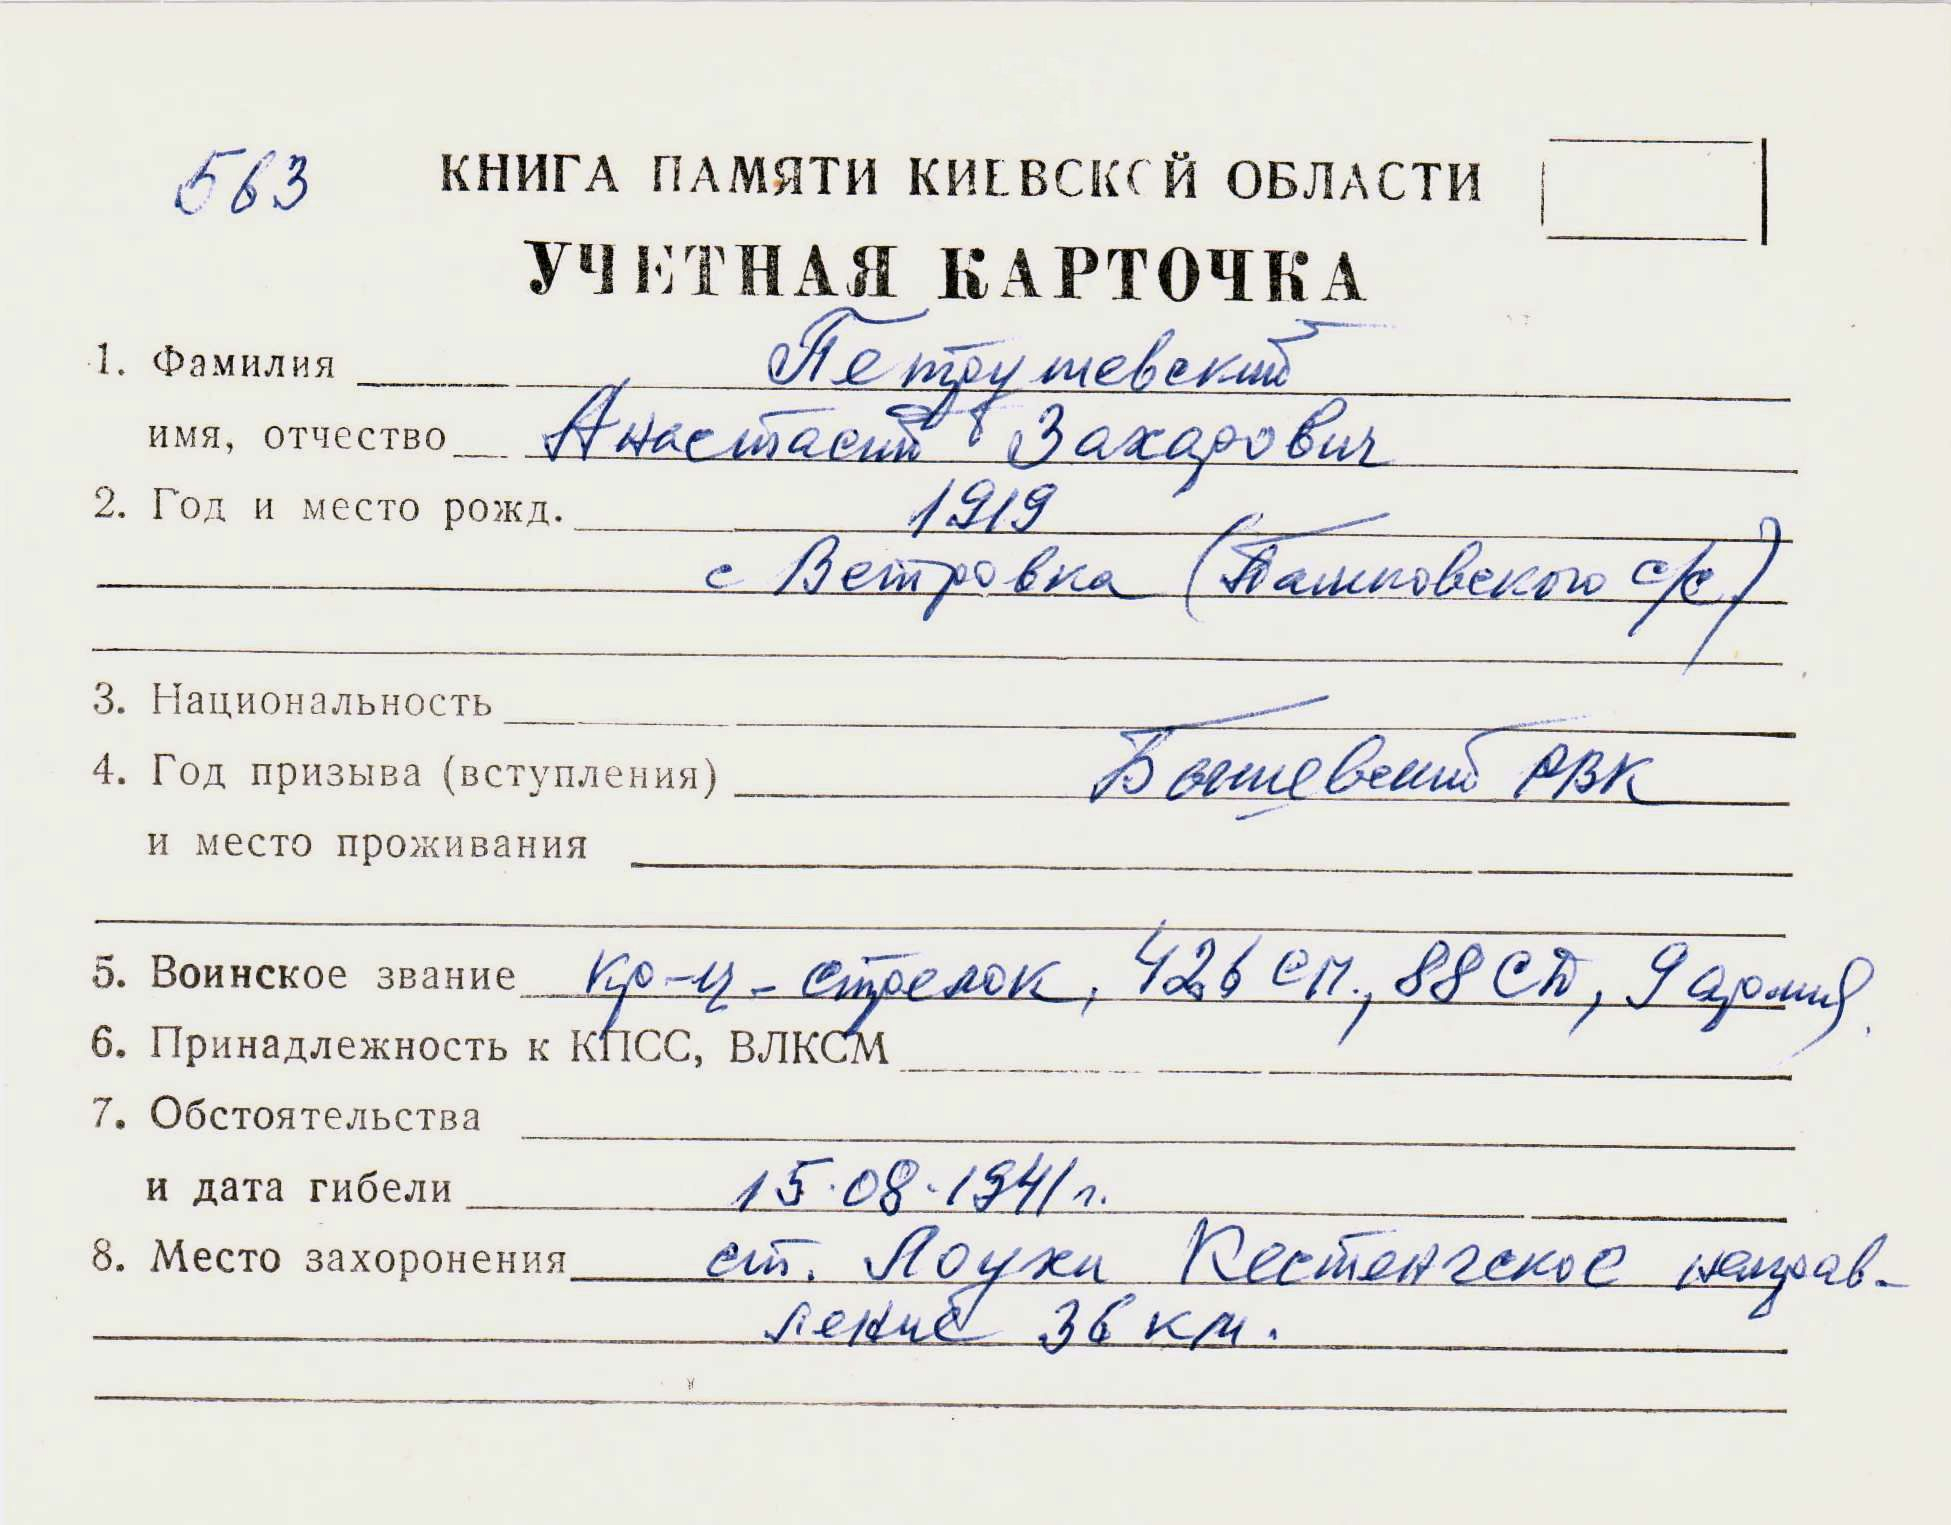 563
КНИГА ПАМЯТИ КИЕВСКОЙ ОБЛАСТИ
УЧЕТНАЯ КАРТОЧКА
1. Фамилия Петрушевский
имя, отчество Анастасий Захарович
2. Год и место рожд. 1919
с Ветровка (Пашковского с/с)
3. Национальность
4. Год призыва (вступления) РВК
и место проживания
5. Воинское звание кр-ц - стрелок, 426 сп., 88 СД, 9 армия.
6. Принадлежность к КПСС, ВЛКСМ
7. Обстоятельства
и дата гибели 15.08.1941 г.
8. Место захоронения ст. Лоухи Кестенгское направ-
ление 36 км.